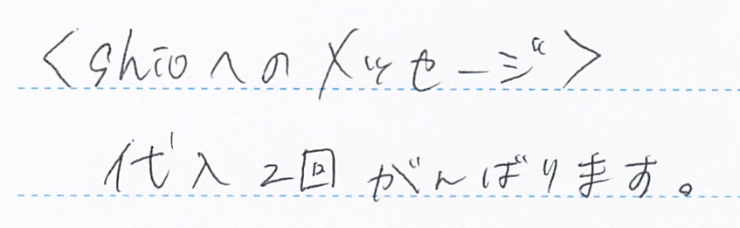 <shioへのメッセージ>
代入2回がんばります。